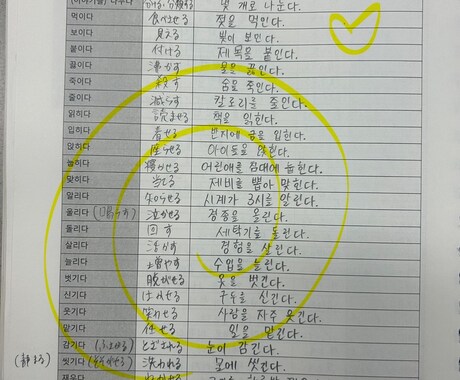 (이야기를) 나누다 몇 개로 나눈다.
먹이다 食べさせる 젖을 먹인다.
보이다 見える 빛이 보인다.
붙이다 付ける 제목을 붙인다.
끓이다 沸かす 물을 끓인다.
죽이다 殺す 숨을 죽인다.
줄이다 減らす 칼로리를 줄인다.
읽히다 読ませる 책을 읽힌다.
입히다 着せる 반지에 금을 입힌다.
앉히다 座らせる 아이들을 앉힌다.
눕히다 寝かせる 어린애를 침대에 눕힌다.
맞히다 当てる 제비를 뽑아 맞힌다.
알리다 知らせる 시계가 3시를 알린다.
울리다 (鳴らす) 泣かせる 경종을 울린다.
돌리다 回す 세탁기를 돌린다.
살리다 活かす 경험을 살린다.
늘리다 増やす 수입을 늘린다.
벗기다 脱がせる 옷을 벗긴다.
신기다 はかせる 구두를 신긴다.
웃기다 笑わせる 사람을 자주 웃긴다.
맡기다 任せる 일을 맡긴다.
감기다 とざされる 눈이 감긴다.
씻기다 洗われる 몸에 씻긴다.
재우다